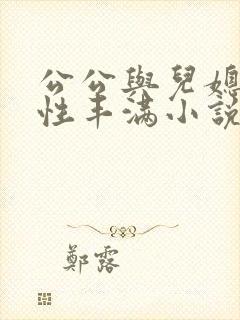 公公與兒媳
性丰滿小說
鄭露